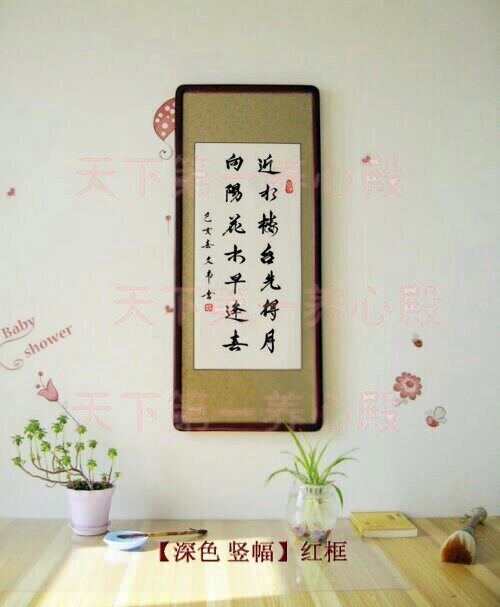 天下第一养心殿
近水楼台先得月
向陽花木早逢春
己亥春
天下第一养心殿
Baby
shower
天下第一养心殿
【深色 竖幅】红框